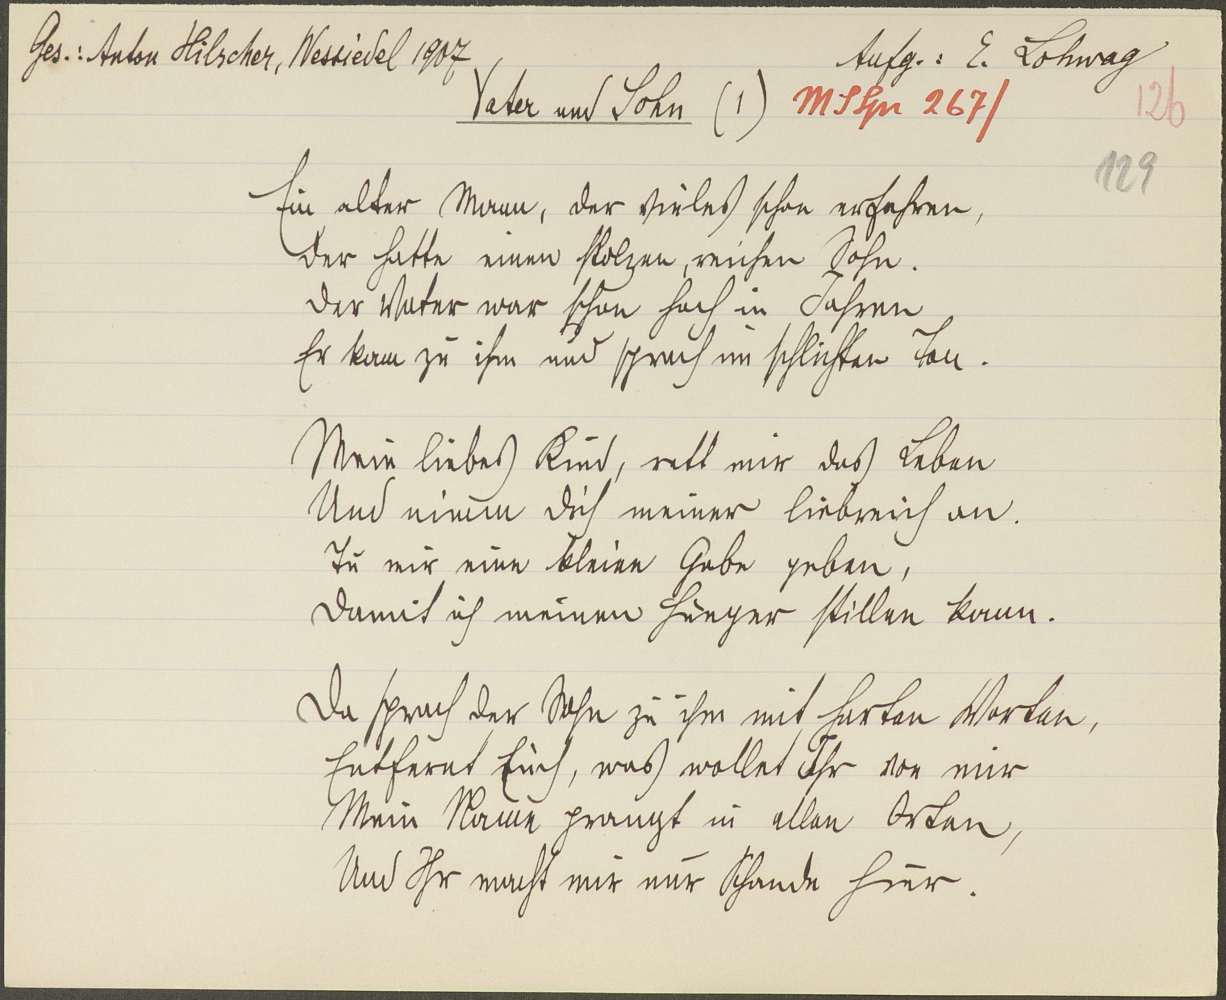 Ges.: Anton Hilscher, Wessiedel 1907
Aufg.: E. Lohwag
Vater und Sohn (1) MSSpr 267/
126
129
Ein alter Mann, der vieles schon erfahren,
Der hatte einen stolzen, reichen Sohn.
Der Vater war schon hoch in Jahren
Er kam zu ihm und sprach im schlichten Ton.
Mein liebes Kind, rett mir das Leben
Und nimm dich meiner liebreich an.
Tu mir eine kleine Gabe geben,
Damit ich meinen Hunger stillen kann.
Da sprach der Sohn zu ihm mit harten Worten,
Entfernt Euch, was wollet Ihr von mir
Mein Name prangt in allen Orten,
Und Ihr macht mir nur Schande hier.